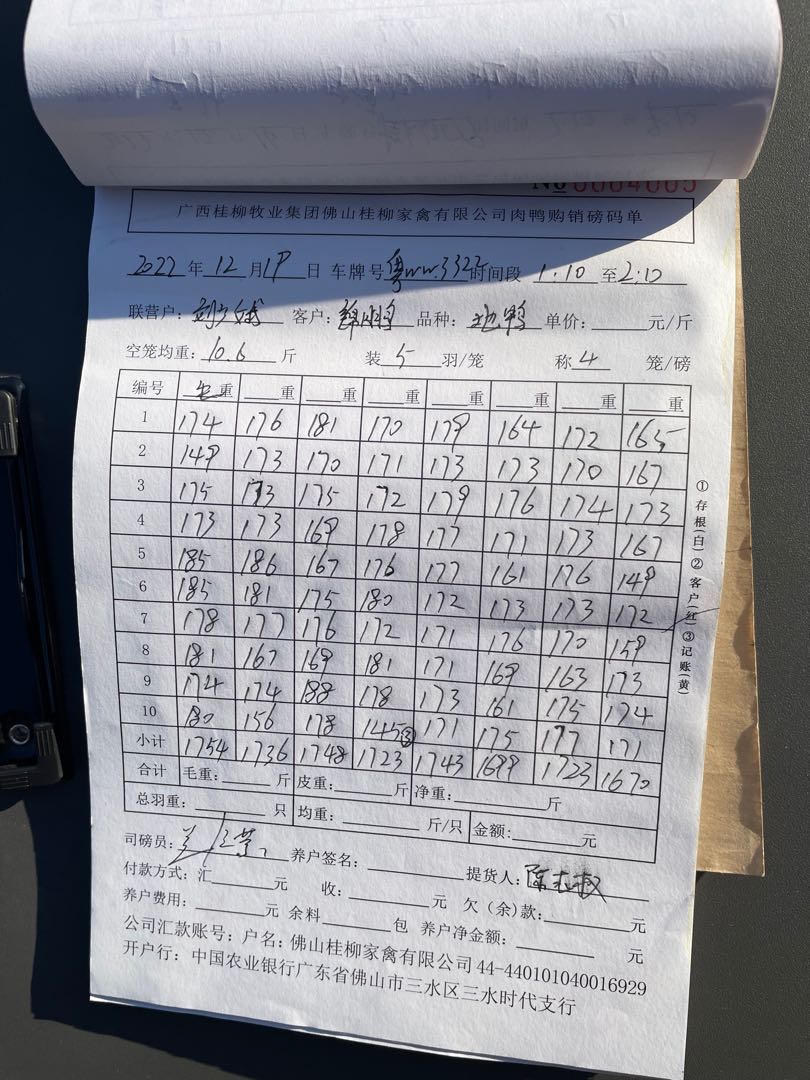 广西桂柳牧业集团佛山桂柳家禽有限公司肉鸭购销磅码单
2022年12月19日 车牌号粤WW.3322时间段 1:10 至2:10
联营户: 客户: 品种: 单价: 元/斤
空笼均重: 10.6 斤 装 5 羽/笼 称 4 笼/磅
编号 毛重 重 重 重 重 重 重 重
1 174 176 181 170 179 164 172 165
2 149 173 170 171 173 173 170 167
3 175 173 175 172 179 176 174 173
4 173 173 169 178 177 171 173 167
5 185 186 167 176 177 161 176 149
6 185 181 175 180 172 173 173 172
7 178 177 176 172 171 176 170 159
8 181 167 169 181 171 169 163 173
9 174 174 188 178 173 161 175 174
10 180 156 178 145③ 171 175 177 171
小计 1754 1736 1748 1723 1743 1699 1723 1670
合计 毛重: 斤 皮重: 斤 净重: 斤
总羽重: 只 均重: 斤/只 金额: 元
①存根(白)②客户(红)③记账(黄)
司磅员: 养户签名: 提货人:
付款方式:汇 元 收: 元 欠(余)款: 元
养户费用: 元 余料 包 养户净金额: 元
公司汇款账号:户名:佛山桂柳家禽有限公司44-440101040016929
开户行:中国农业银行广东省佛山市三水区三水时代支行